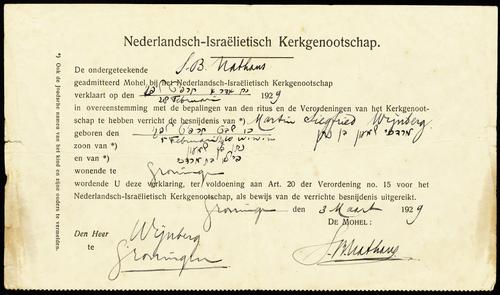 Nederlandsch-Israëlietisch Kerkgenootschap.
De ondergeteekende S. B. Nathans
geadmitteerd Mohel bij het Nederlandsch-Israëlietisch Kerkgenootschap
verklaart op den 1929
28 Februari
in overeenstemming met de bepalingen van den ritus en de Verordeningen van het Kerkgenoot-
schap te hebben verricht de besnijdenis van *) Martin Siegfried Wijnberg
geboren den
Februari
zoon van *)
en van *)
wonende te Groningen
wordende U deze verklaring, ter voldoening aan Art. 20 der Verordening no. 15 voor het
Nederlandsch-Israëlietisch Kerkgenootschap, als bewijs van de verrichte besnijdenis uitgereikt.
Groningen den 3 Maart 1929
DE MOHEL:
Den Heer Wijnberg
te Groningen
S. B. Nathans
*) Ook de Joodsche namen van het kind en zijne ouders te vermelden.